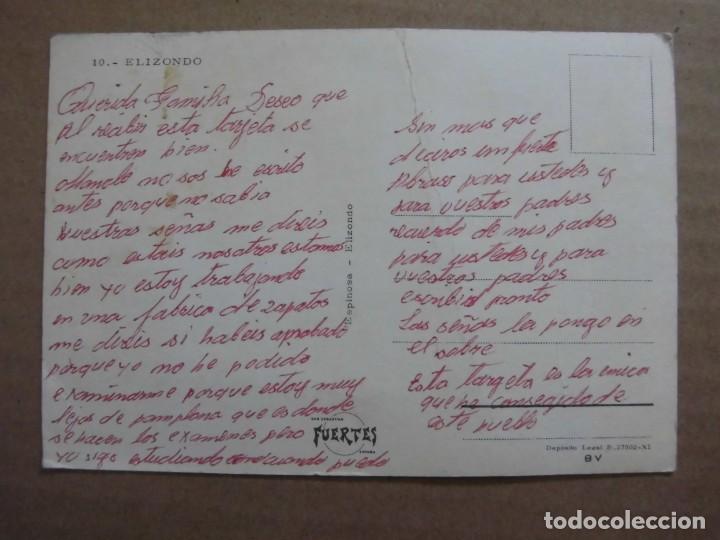 10.- ELIZONDO
Querida Familia Deseo que
Al recibir esta targeta se
encuentren bien.
no sos he escrito
antes porque no sabia
vuestras señas me direis
como estais nosotros estamos
bien yo estoy trabajando
en una fabrica de zapatos
me direis si habeis aprobado
porque yo no he podido
examinarme porque estoy muy
lejos de pamplona que es donde
se hacen los examenes pero
yo sigo estudiando cuando puedo
Espinosa - Elizondo
SAN SEBASTIAN
FUERTES
ESPAÑA
Sin mas que
diciros un fuerte
Abraso para ustedes y
para vuestros padres
recuerdo de mis padres
para ustedes y para
vuestros padres
escribir pronto
Las señas la pongo en
el sobre
Esta targeta es la unica
que he conseguido de
este pueblo
Depósito Legal B. 27502-XI
BV
todocoleccion.net